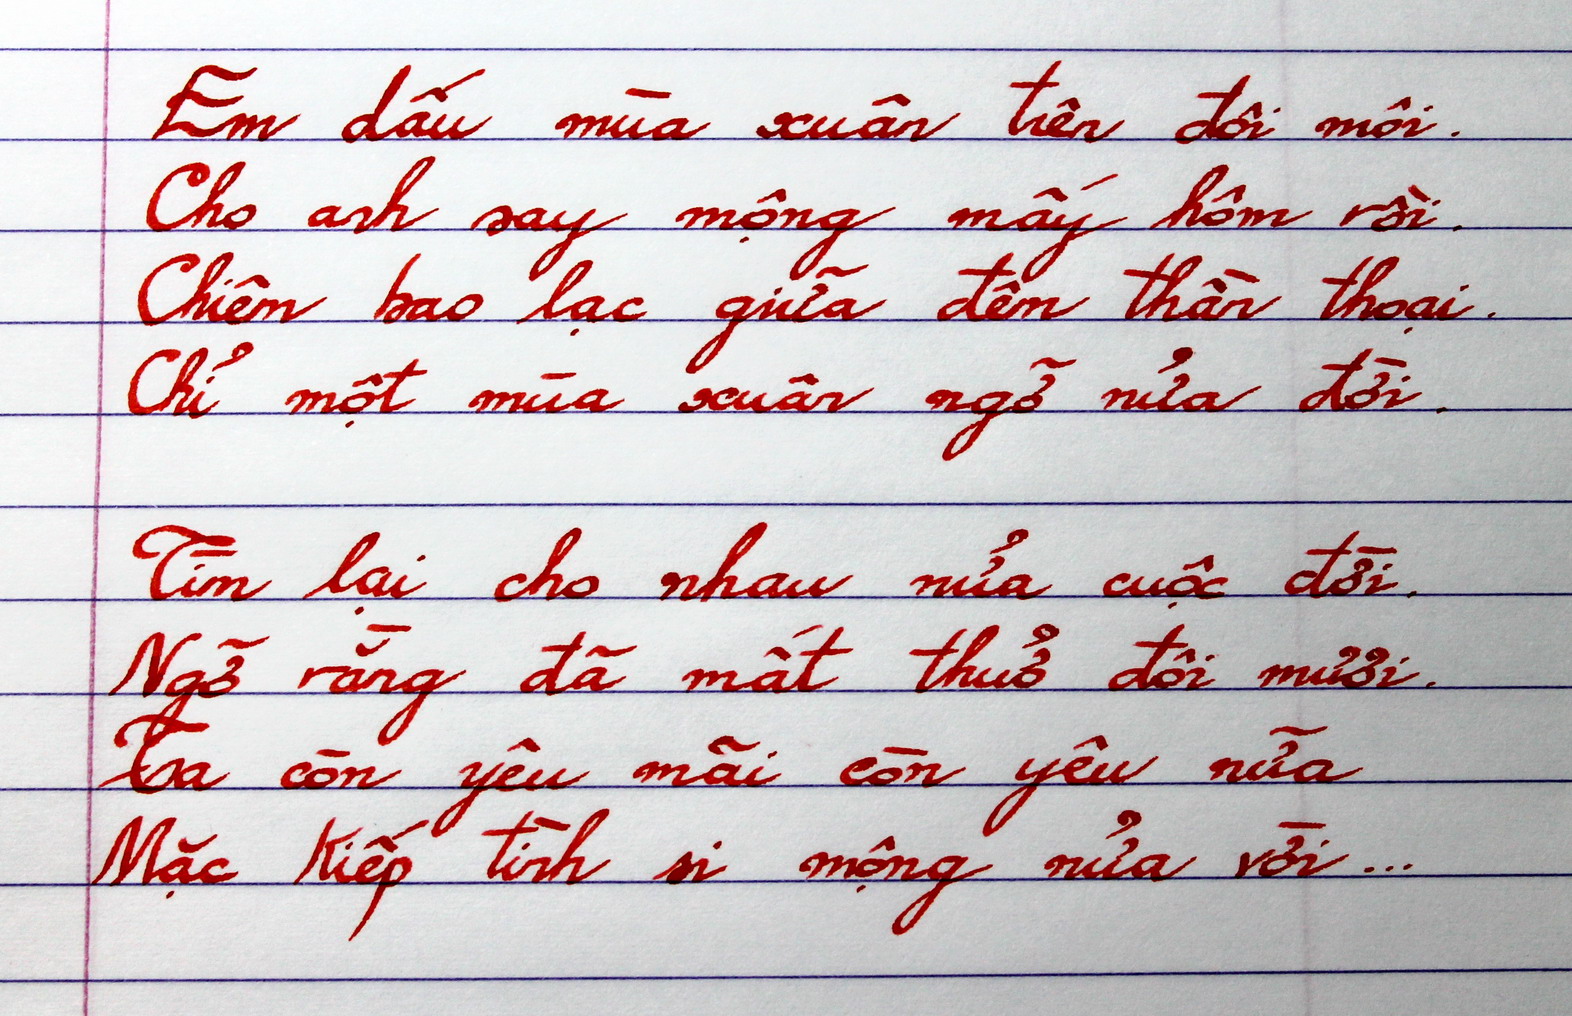 Em dấu mùa xuân trên đôi môi.
Cho anh say mộng mấy hôm rồi.
Chiêm bao lạc giữa đêm thần thoại.
Chỉ một mùa xuân ngỡ nửa đời.
Tìm lại cho nhau nửa cuộc đời.
Ngỡ rằng đã mất thuở đôi mươi.
Ta còn yêu mãi còn yêu nữa
Mặc kiếp tình si mộng nửa vời...